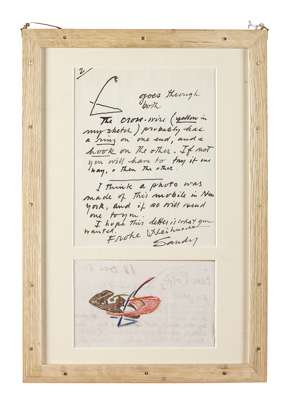 2/
goes through
both
The cross-wire (yellow in
my sketch) probably has
a ring on one end, and a
hook on the other. If not
you will have to try it one
way, & then the other.
I think a photo was
made of this mobile in New
York, and if so will send
one to you.
I hope this letter is what you
wanted.
Frohe Weihnachten
Sandy